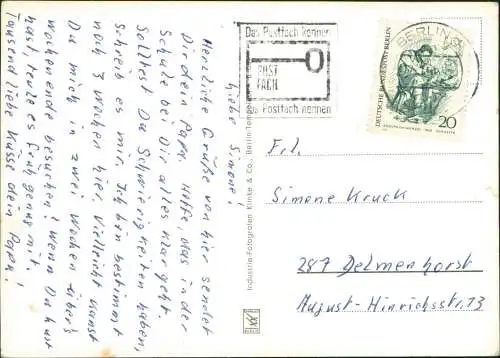 Liebe Simone!
Herzliche Grüße von hier sendet
Dir dein Papa. Hoffe, das in der
Schule bei Dir alles klar geht.
Solltest Du Schwierigkeiten haben,
Schreib es mir. Ich bin bestimmt
noch 3 Wochen hier. Vielleicht kannst
Du mich in zwei Wochen über's
Wochenende besuchen? Wenn Du Lust
hast rufe es früh genug mit.
Tausend liebe Küsse dein Papa!
Das Postfach kennen
POST
FACH
das Postfach nennen
BERLIN
DEUTSCHE BUNDESPOST BERLIN
20
Frl.
Simone Kruck
287 Delmenhorst
August-Hinrichsstr. 13
Industrie-Fotografen Klinke & Co., Berlin-Tempelhof